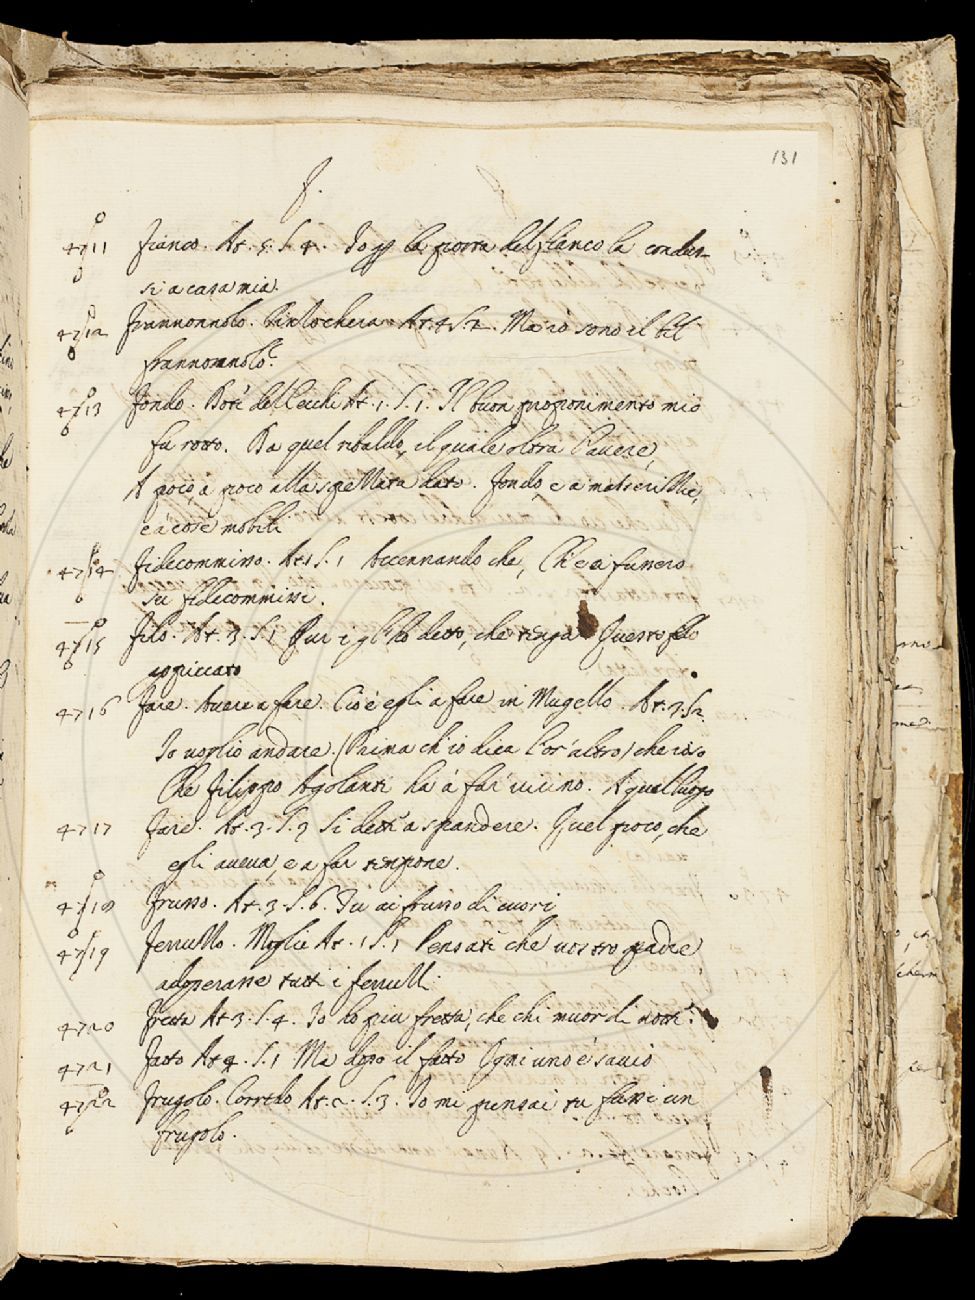 131
f.
4711 fianco. At. 5. S. 4. Io  la porta del fianco la condus-
si a casa mia.
4712 frannonnolo. At. 4 S. 2. Ma io sono il bel
frannonnolo.
4713 fondo. At. 1. S. 1. Il buon proponimento mio
fu rotto. Da quel ribaldo, il quale oltra l'avere,
A poco, a poco alla spellata dato. fondo, e a masserillie,
e a cose mobili.
4714 fidecommisso. At. 1 S. 1 Accennando che, Ch'e a fussero
su fidecommissi.
4715 filo. At. 3. S. 1 Pur i gl'ho detto, che tenga Questo filo
appiccato
4716 fare. Avere a fare. Cio è egli a fare in Mugello. At. 3. S. 2.
Io voglio andare. (Prima ch'io dica l'or' altro) che
Che filippo Agolanti ha à far vicino. A quel luogo
4717 fare. At. 3. S. 9 Si dett' a spandere. Quel poco, che
egli aveva, e a far tempone.
4718 frusso. At. 3. S. 6. Tu ai frusso di cuori
4719 ferruzzo. Moglie At. 1 S. 1 Pensati che vostro padre
adoperasse tutti i ferruzzi.
4720 fretta At. 3. S. 4. Io ho piu fretta, che chi muor di notte.
4721 fatto At. 4. S. 1 Ma dopo il fatto Ogni uno è savio
4722 frugolo. At. 2. S. 3. Io mi pensai tu fussi un
frugolo.